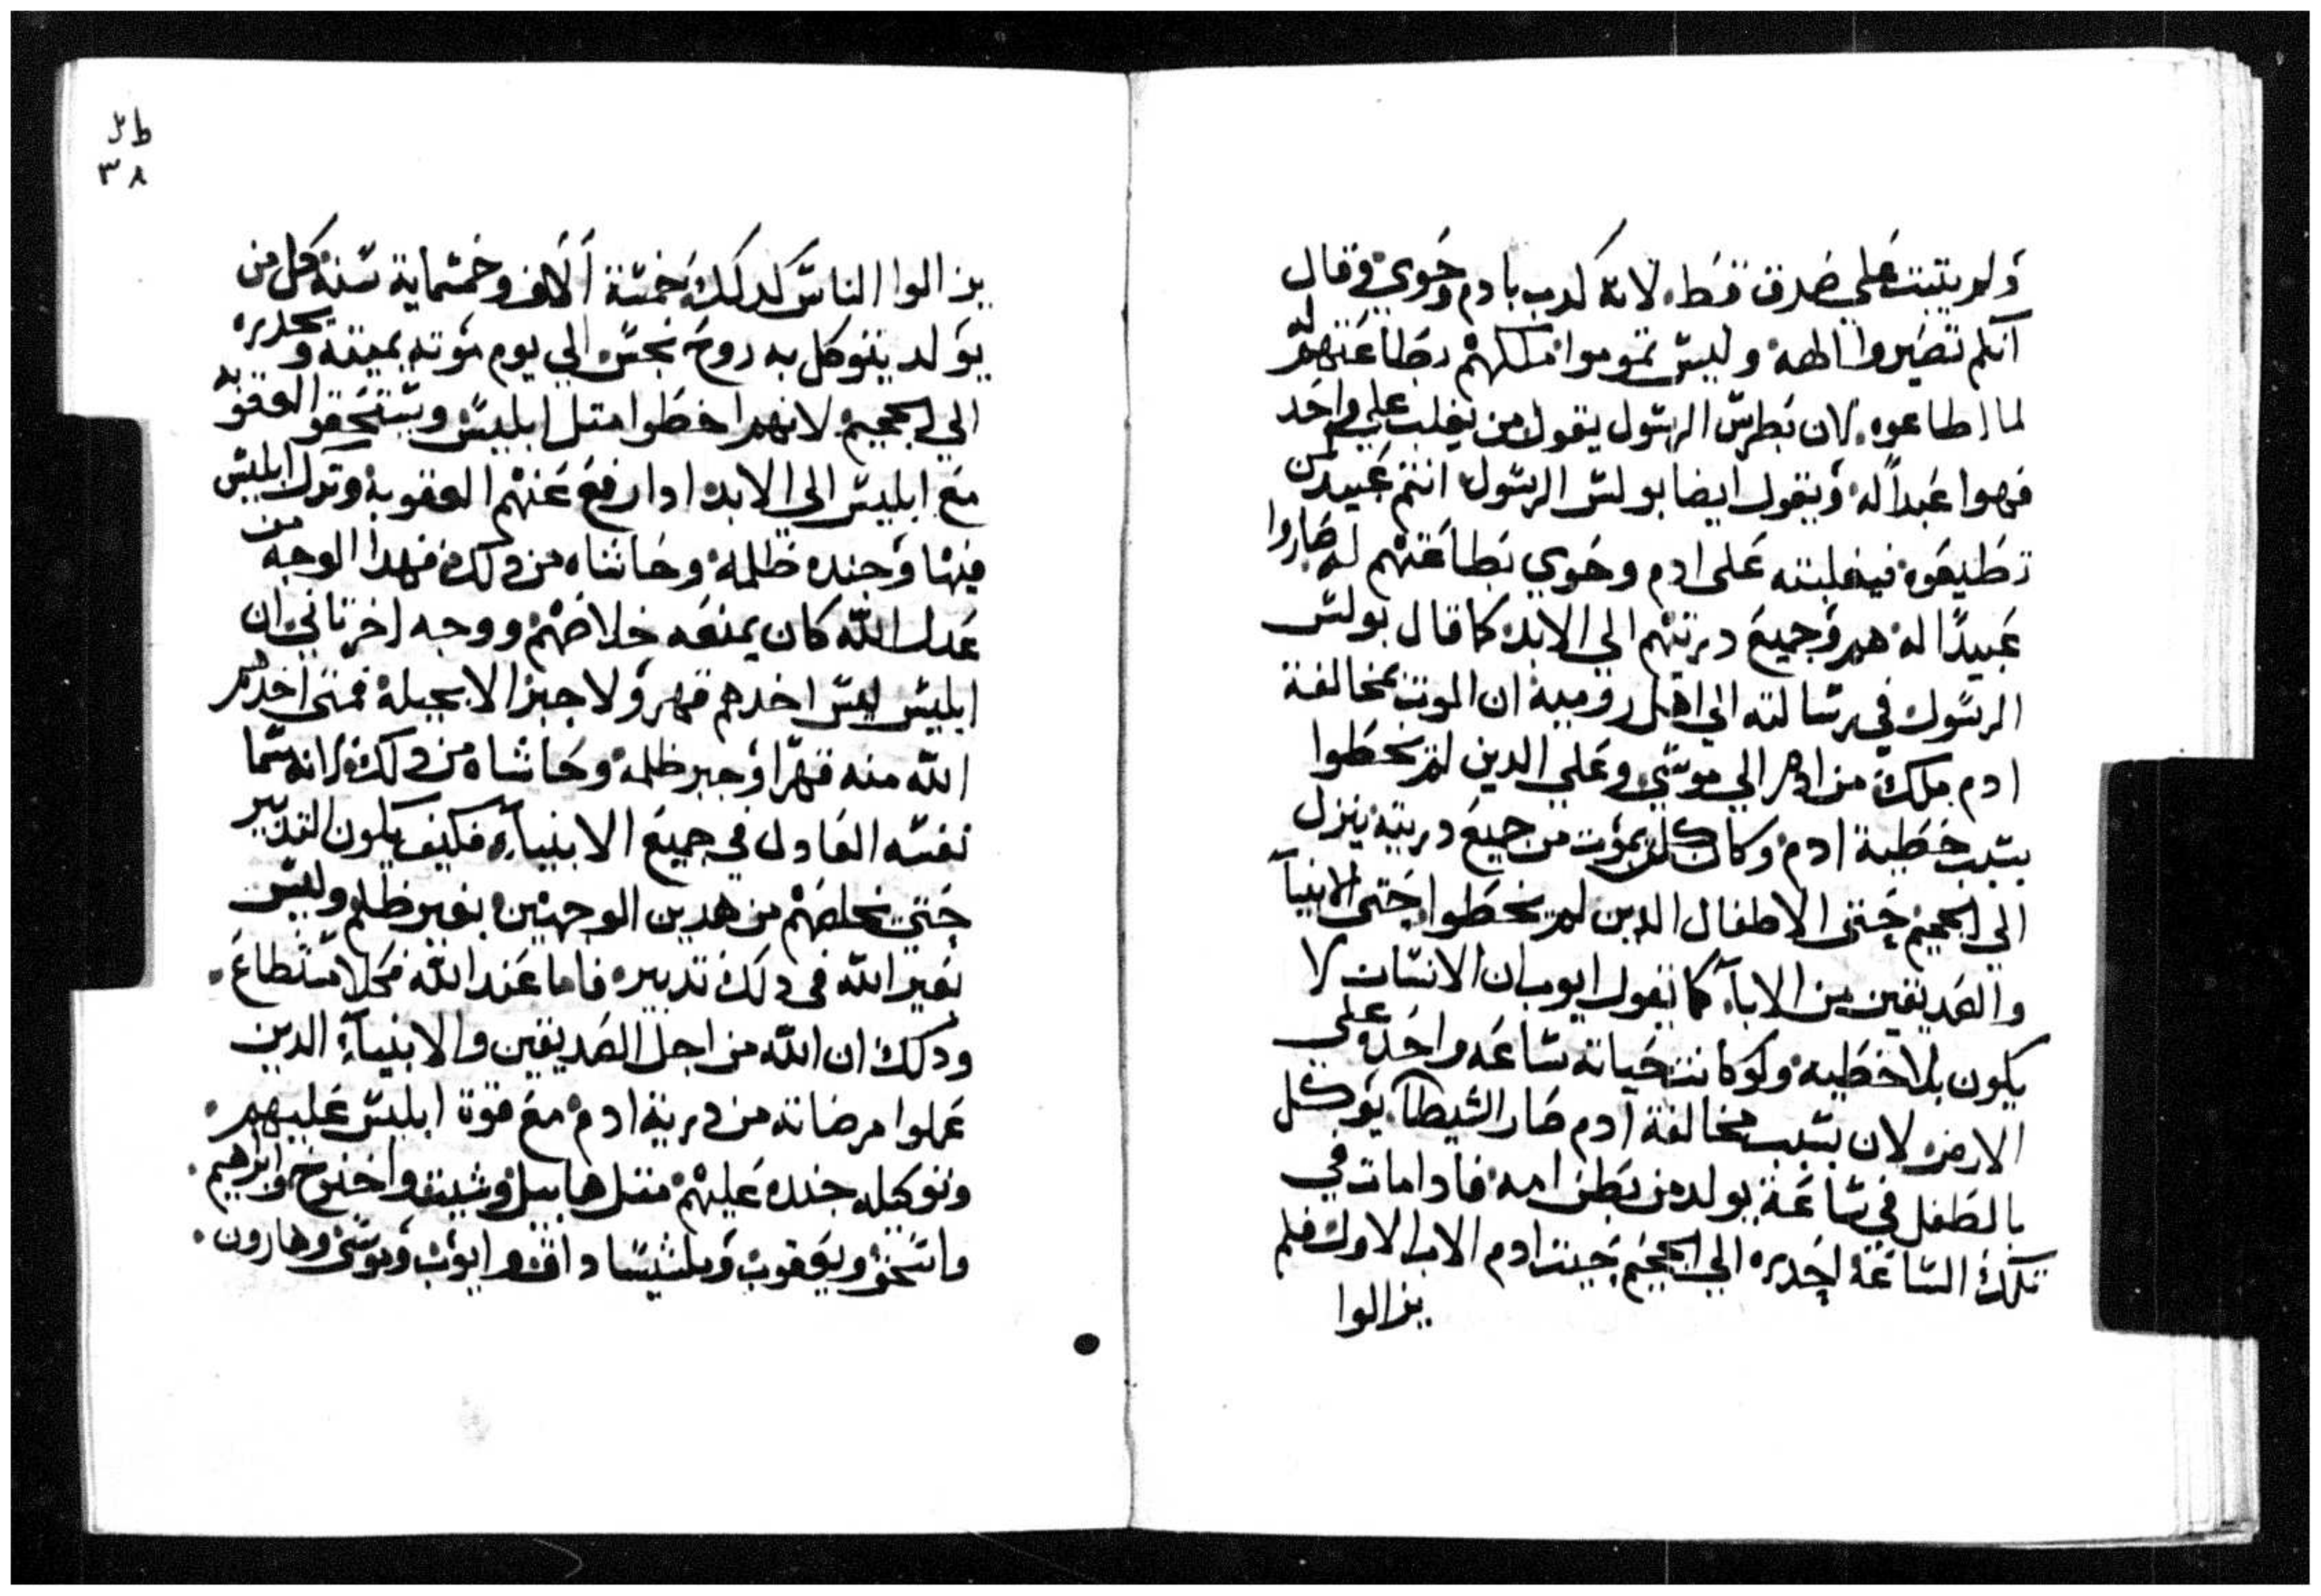 ولم يتبت علي صدق قط. لانه كدب بادم وحوي وقال
انكم تصيروا الهه وليس تموتوا فملكهم بطاعتهم له
لما اطاعوه. لان بطرس الرسول يقول من يغلب علي واحد
فهوا عبداً له ويقول ايضا بولس الرسول انتم عبيد لمن
تطيعوه فبغلبته على ادم وحوي بطاعتهم له صاروا
عبيدًا له هم وجميع دريتهم الي الابد كما قال بولس
الرسول في رسالته الي اهل روميه ان الموت بمخالفة
ادم ملك من ادم الي موسي وعلي الدين لم يخطوا
بسبب خطية ادم وكان كلمن يموت من جميع دريته ينزل
الي الجحيم حتى الاطفال الدين لم يخطوا حتى الانبيآ
والصديقين من الابآ. كما يقول ايوب ان الانسان لا
يكون بلا خطيه ولو كانت حياته ساعه واحده على
الارض لان بسبب مخالفة ادم صار الشيطان يوكل
بالطفل في ساعة يولد من بطن امه فادا مات في
تلك الساعة احدره الي الجحيم حيت ادم الاب الاول فلم
يزالوا
ط
٣٨
يزالوا الناس كدلك خمسة آلاف وخمسماية سنة كل من
يولد يتوكل به روح نجس الي يوم موته يميته ويحدره
الي الجحيم لانهم اخطوا متل ابليس ويستحقوا العقوبه
مع ابليس الي الابد ادا رفع عنهم العقوبة وترك ابليس
فيها وجنده ظلمه وحاشاه من دلك فهدا الوجه من
عدل الله كان يمنعه خلاصهم ووجه اخر تاني ان
ابليس ليس اخدهم قهر ولا جبر الا بحيلة فمتى اخدهم
الله منه قهرًا وجبر ظلمه وحاشاه من دلك لانه سما
نفسه العادل في جميع الانبيآء فكيف يكون التدبير
حتى يخلصهم من هدين الوجهين بغير ظلم وليس
لغير الله في دلك تدبير. فاما عند الله فكلا مستطاع.
ودلك ان الله من اجل الصديقين والانبيآء الدين
عملوا مرضاته من درية ادم مع قوة ابليس عليهم.
وتوكيل جنده عليهم متل هابيل وشيت واخنوخ وابرهيم.
واسحق ويعقوب وملشيساداق وايوب وموسى وهارون.